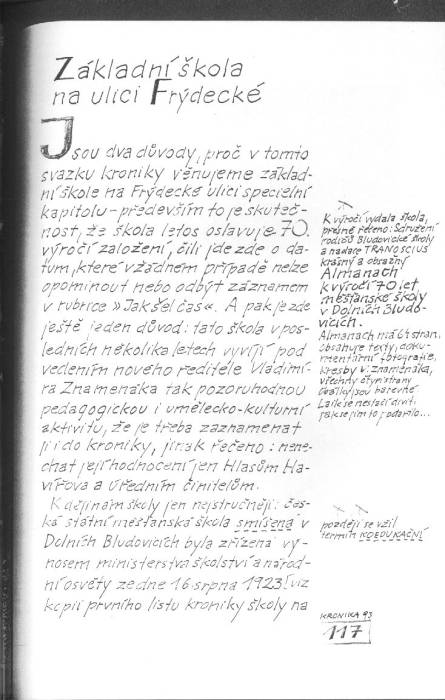 Základní škola
na ulici Frýdecké
Jsou dva důvody, proč v tomto
svazku kroniky věnujeme základ-
ní škole na Frýdecké ulici specielní
kapitolu – především to je skuteč-
nost, že škola letos oslavuje 70.
výročí založení, čili jde zde o da-
tum, které v žádném případě nelze
opominout nebo odbýt záznamem
v rubrice »Jak šel čas«. A pak je zde
ještě jeden důvod: tato škola v pos-
ledních několika letech vyvíjí pod
vedením nového ředitele Vladimí-
ra Znamenáka tak pozoruhodnou
pedagogickou i umělecko-kulturní
aktivitu, že je třeba zaznamenat
ji i do kroniky, jinak řečeno: nene-
chat její hodnocení jen Hlasům Ha-
vířova a úředním činitelům.
K dějinám školy jen nejstručněji: čes-
ká státní měšťanská škola smíšená v
Dolních Bludovicích byla zřízena vý-
nosem ministerstva školství a národ-
ní osvěty ze dne 16. srpna 1923 (viz
kopii prvního listu kroniky školy na
K výročí vydala škola,
přesně řečeno: Sdružení
rodičů Bludovické školy
a nadace TRANOSCIUS
krásný a obrazný
Almanach
k výročí 70 let
měšťanské školy
v Dolních Bludo-
vicích.
Almanach má 64 stran,
obsahuje texty, doku-
mentární fotografie,
kresby V. Znamenáka,
všechny čtyři strany
obálky jsou barevné.
Laik se nestačí diviti,
jak se jim to podařilo...
později se vžil
termín KOEDUKAČNÍ
KRONIKA 93
117